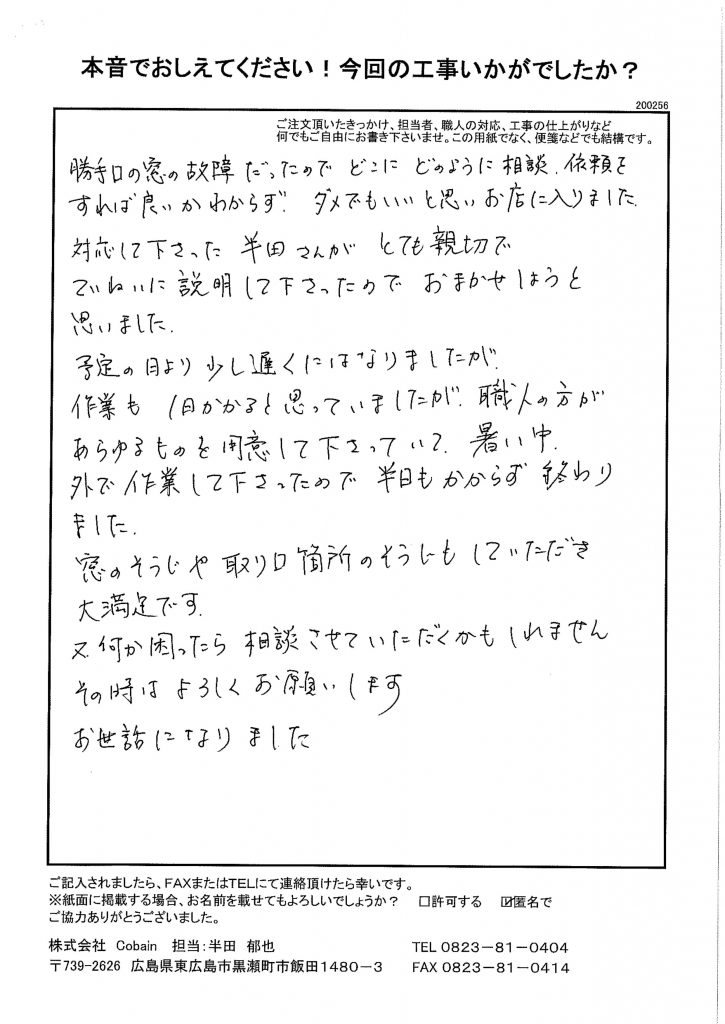 本音でおしえてください！今回の工事いかがでしたか？
200256
ご注文頂いたきっかけ、担当者、職人の対応、工事の仕上がりなど
何でもご自由にお書き下さいませ。この用紙でなく、便箋などでも結構です。
勝手口の窓の故障だったので どこに どのように 相談、依頼を
すれば良いかわからず、ダメでもいいと思いお店に入りました。
対応して下さった 半田さんが とても親切で
ていねいに 説明して下さったので おまかせしようと
思いました。
予定の日より 少し遅くにはなりましたが、
作業も 1日かかると思っていましたが、職人の方が
あらゆるものを用意して下さっていて、暑い中、
外で作業して下さったので 半日もかからず 終わり
ました。
窓のそうじや 取り口箇所のそうじもしていただき
大満足です。
又、何か困ったら 相談させていただくかもしれません
その時は よろしくお願いします
お世話になりました
ご記入されましたら、FAXまたはTELにて連絡頂けたら幸いです。
※紙面に掲載する場合、お名前を載せてもよろしいでしょうか？ □許可する ☑匿名で
ご協力ありがとうございました。
株式会社 Cobain 担当：半田 郁也 TEL 0823－81－0404
〒739-2626 広島県東広島市黒瀬町市飯田1480－3 FAX 0823－81－0414